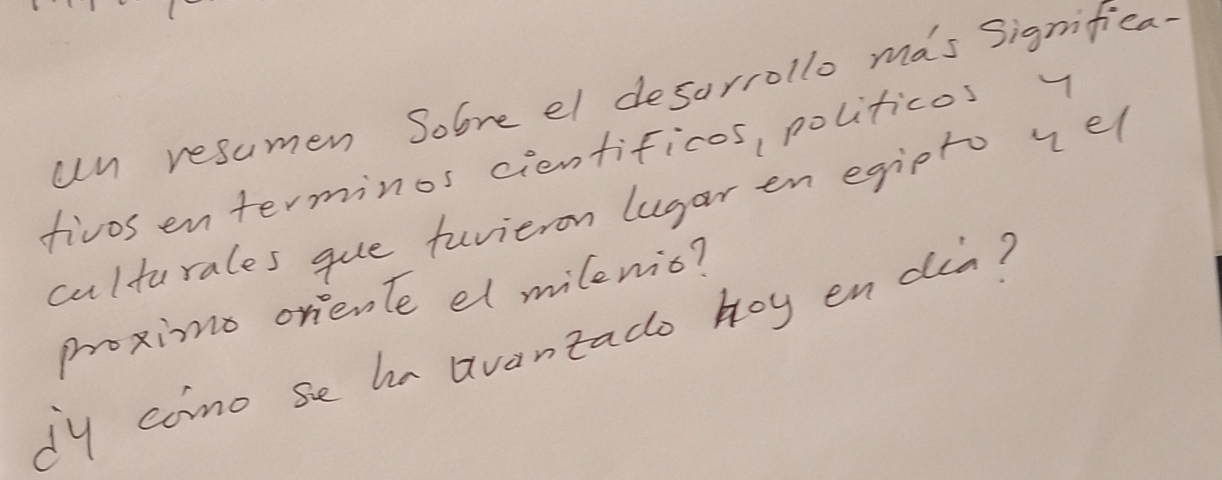 un resumen sobre el desarrollo más significa-
tivos en terminos cientificos, politicos y
culturales que tuvieron lugar en egipto y el
proximo oriente el milenio?
¿y cómo se ha avanzado hoy en día?